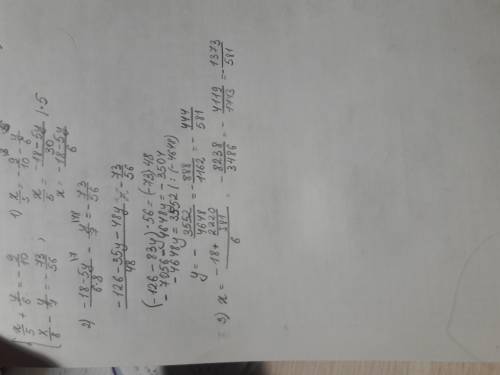 { x/5 + y/6 = - 9/10
{ x/8 - y/7 = - 73/56 ;
1) x/5 = - 9/10 - y/6
x/5 = -18-5y/30 | · 5
x = -18-5y/6
2) -18-5y/6·8 - y/7 = - 73/56
-126-35y-48y/48 = - 73/56
(-126-83y)·56 = (-73)·48
-7056-4648y = -3504
-4648y = 3552 | : (-4648)
y = - 3552/4648 = - 888/1162 = - 444/581
3) x = -18 + 2220/581/6 = - 8238/3486 = - 4119/1743 = - 1373/581